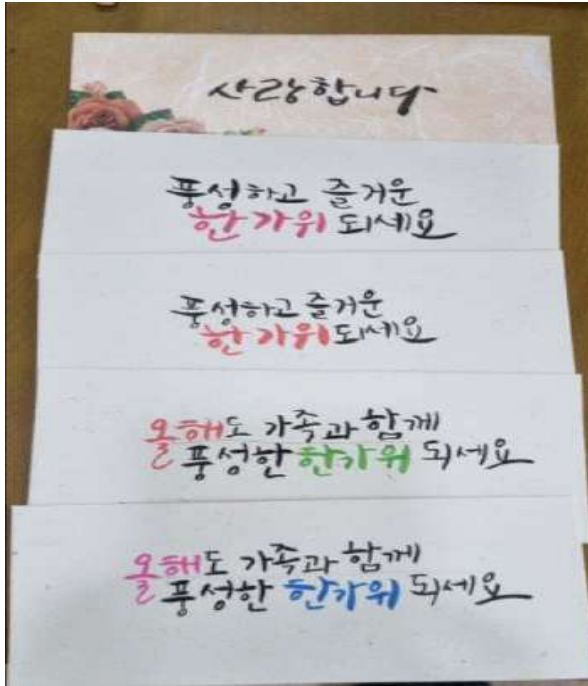 사랑합니다
풍성하고 즐거운
한가위 되세요
풍성하고 즐거운
한가위 되세요
올해도 가족과 함께
풍성한 한가위 되세요
올해도 가족과 함께
풍성한 한가위 되세요